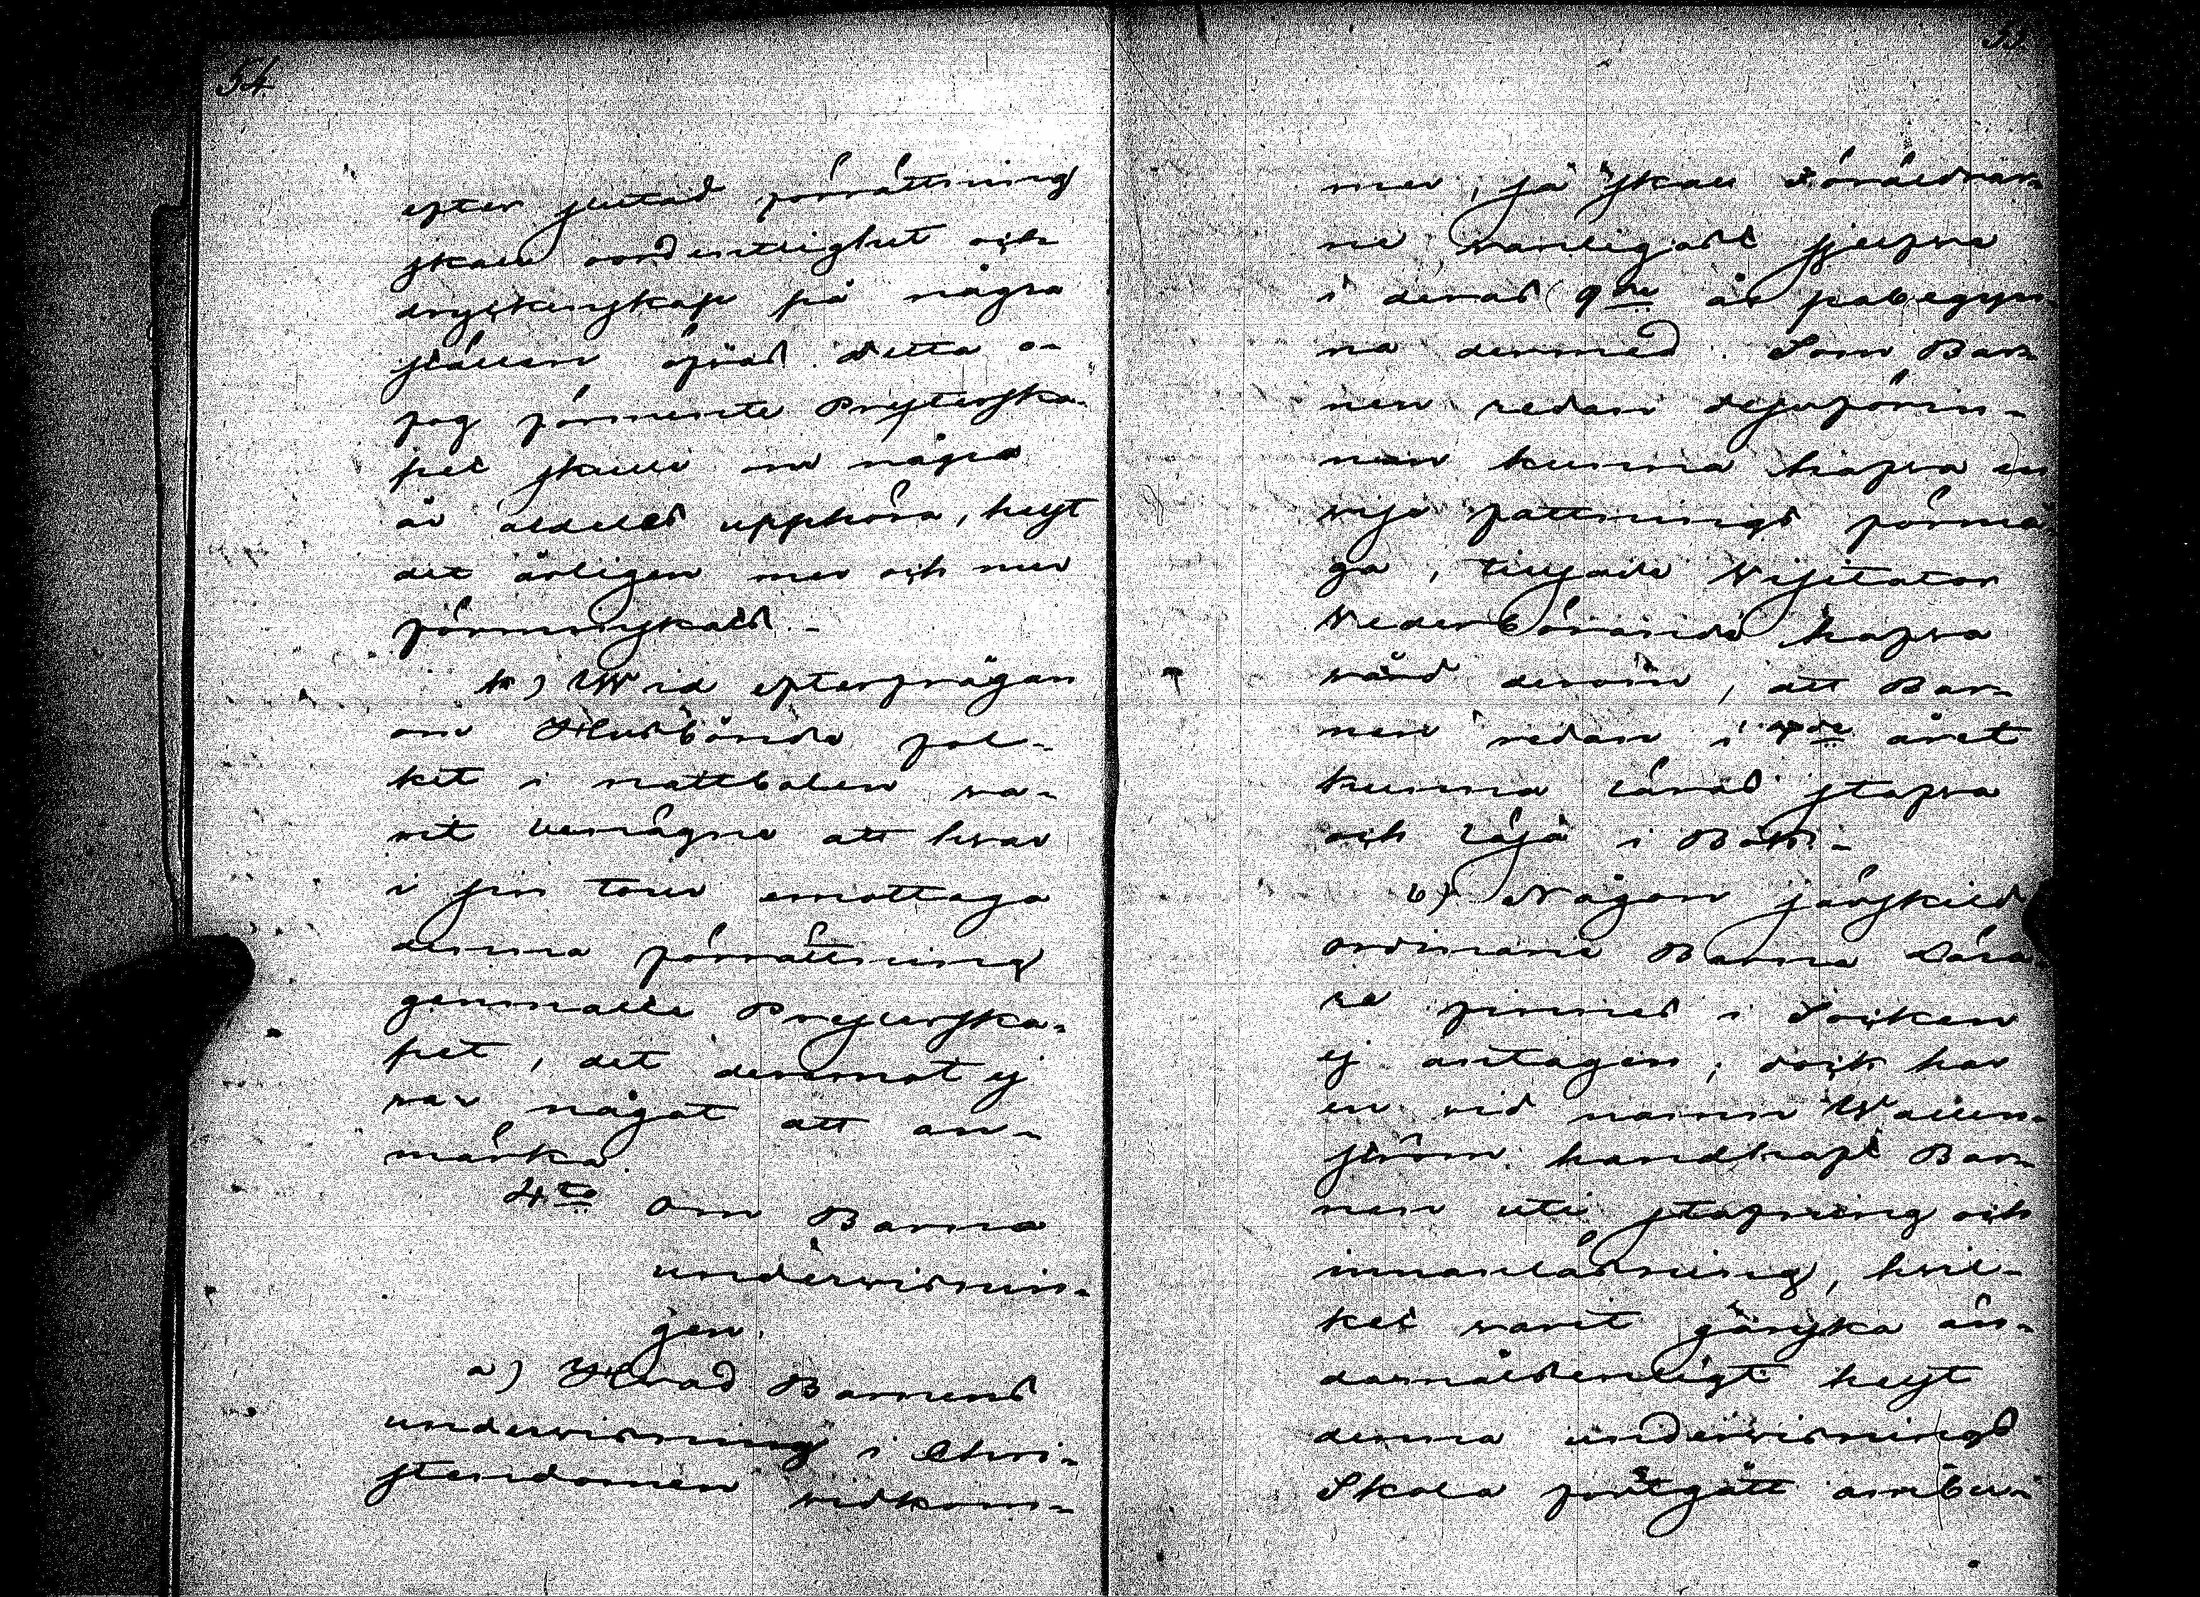 54.
efter slutad förrättning
skall oordentlighet och
dryckenskap på några
ställen öfvas. Detta o-
fog förmente Presterska-
pet skulle om några
år aldeles upphöra, helst
det årligen mer och mer
förminskats. -
h) Wid efterfrågan
om Husbönds fol-
ket i nattbolen va-
rit benägne att hvar
i sin tour emottaga
denna förrättning
genmälte Presterska-
pet, det deremot ej
var något att an-
märka.
4:to Om Barna
underwisnin-
gen.
a) Hvad Barnens
underwisning i Chri-
stendomen vidkom-
55.
mer, så skall Föräldrar-
ne vanligast sjelfva
i deras 9de år påbegyn-
na dermed. Som Bar-
nen redan dessförin-
nan kunna hafva en
viss fattnings förmå
ga, tillsade Visitator
Vederbörande hafva
vård derom, att Bar-
nen redan i 7de året
kunna läras stafva
och läsa i Bok. -
b) Någon särskild
ordinarie Barna Lära
re finnes i Socken
ej antagen; dock har
en vid namn Wallen-
ström handhaft Bar-
nen uti stafning och
innanläsning, hvil-
ket varit ganska än-
damålsenligt helst
denna underwisnings
Skola fortgått ambu-